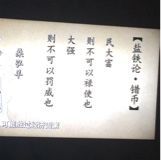 【盐铁论·错币】
民大富
则不可以禄使也
大强
则不可以罚威也
桑弘羊